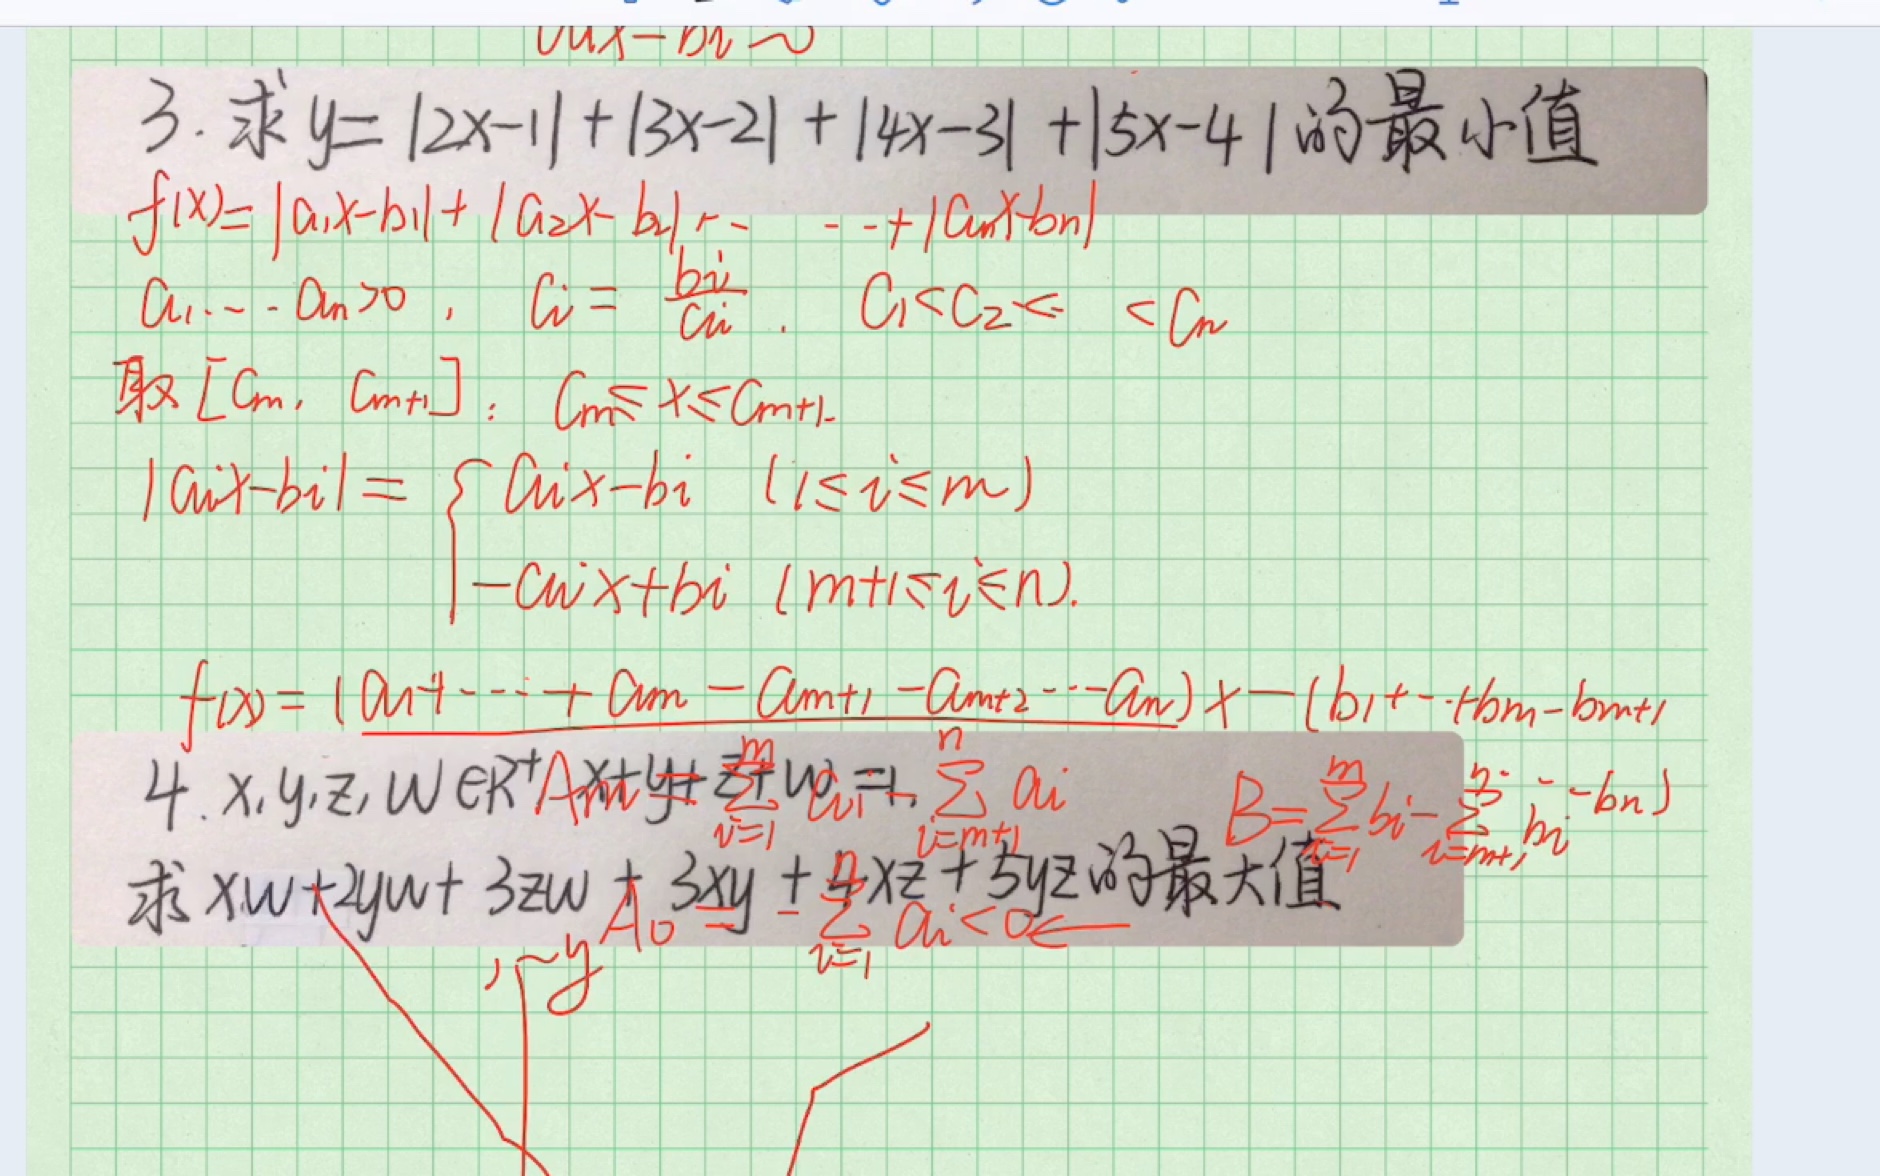 3. 求 y= |2x-1| + |3x-2| + |4x-3| + |5x-4| 的最小值
f(x)= |a₁x-b₁| + |a₂x-b₂| + -- --- + |aₙx-bₙ|
a₁---- aₙ>0, Cᵢ = bᵢ/aᵢ. C₁<C₂< <Cₙ
取 [Cₘ, Cₘ₊₁]: Cₘ≤x≤Cₘ₊₁.
|aᵢx-bᵢ| = { aᵢx-bᵢ (1≤i≤m)
-aᵢx+bᵢ (m+1≤i≤n).
f(x) = (a₁+----+aₘ-aₘ₊₁-aₘ₊₂---aₙ)x-(b₁+--+bₘ-bₘ₊₁
---bₙ)
4. x, y, z, w∈R⁺ x+y+z+w=1,
Aₘ = ∑ᵢ₌₁ᵐ aᵢ - ∑ᵢ₌ₘ₊₁ⁿ aᵢ B=∑ᵢ₌₁ᵐ bᵢ-∑ᵢ₌ₘ₊₁ⁿ bᵢ
求 xw+2yw+3zw+3xy+4xz+5yz 的最大值
A₀ = -∑ᵢ₌₁ⁿ aᵢ<0 ←
y